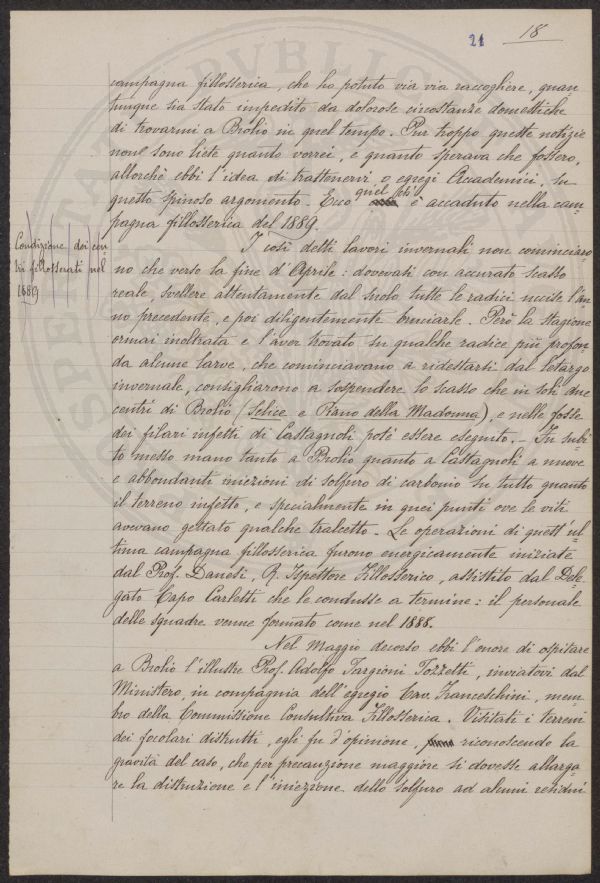 21 18
campagna fillosserica, che ho potuto via via raccogliere, quan
tunque sia stato impedito da dolorose circostanze domestiche
di trovarmi a Brolio in quel tempo. Pur troppo queste notizie
non sono liete quanto vorrei, e quanto sperava che fossero,
allorchè ebbi l'idea di trattenervi o egregi Accademici, su
questo spinoso argomento. Ecco quel che è accaduto nella cam-
pagna fillosserica del 1889.
Condizione dei cen-
tri fillosserati nel
1889
I così detti lavori invernali non cominciaro-
no che verso la fine d'Aprile: dovevasi con accurato scasso
reale, svellere attentamente dal suolo tutte le radici uccise l'an-
no precedente, e poi diligentemente bruciarle. Però la stagione
ormai inoltrata e l'aver trovato su qualche radice più profon-
da alcune larve, che cominciavano a ridestarsi dal letargo
invernale, consigliarono a sospendere lo scasso che in soli due
centri di Brolio (Selice e Piano della Madonna), e nelle fosse
dei filari infetti di Castagnoli potè essere eseguito. - Fu subi-
to messo mano tanto a Brolio quanto a Castagnoli a nuove
e abbondanti iniezioni di solfuro di carbonio su tutto quanto
il terreno infetto, e specialmente in quei punti ove le viti
avevano gettato qualche tralcetto. - Le operazioni di quest'ul-
tima campagna fillosserica furono energicamente iniziate
dal Prof. Danesi, R. Ispettore Fillosserico, assistito dal Dele-
gato Capo Carletti che le condusse a termine: il personale
delle squadre venne formato come nel 1888.
Nel Maggio decorso ebbi l'onore di ospitare
a Brolio l'illustre Prof. Adolfo Targioni Tozzetti, inviatovi dal
Ministero, in compagnia dell'egregio Cav. Franceschini, mem-
bro della Commissione Consultiva Fillosserica. Visitati i terreni
dei focolari distrutti, egli fu d'opinione, riconoscendo la
gravità del caso, che per precauzione maggiore si dovesse allarga-
re la distruzione e l'iniezione dello solfuro ad alcuni residui